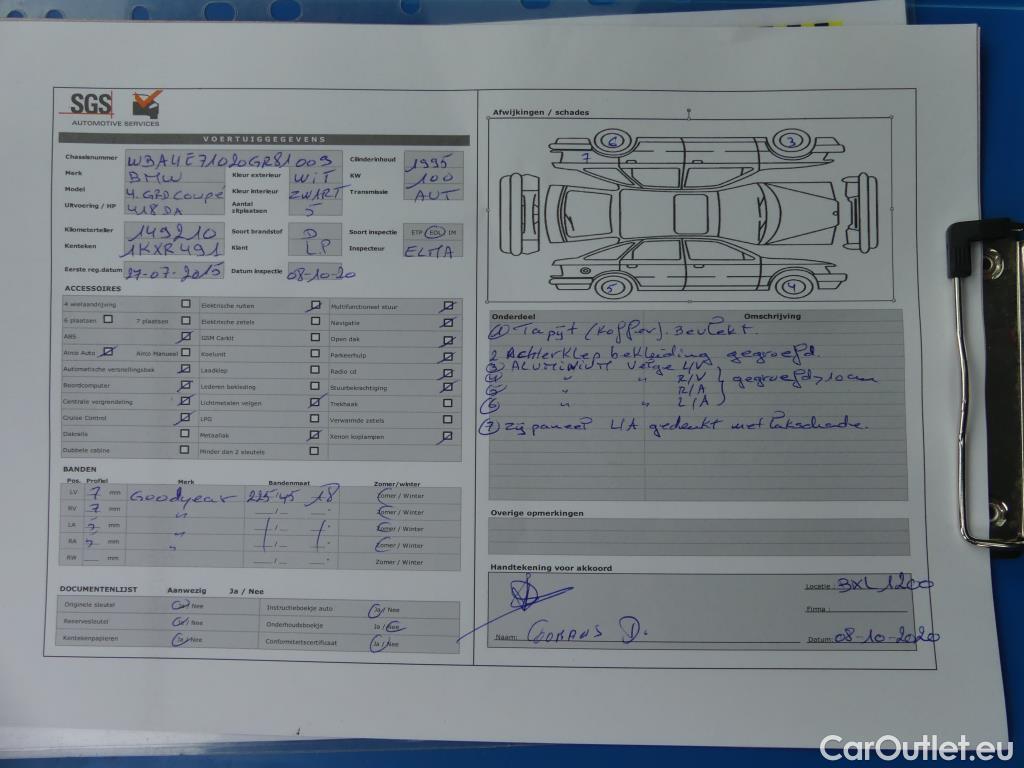 SGS
AUTOMOTIVE SERVICES
VOERTUIGGEGEVENS
Chassisnummer WBA4E71020GR81009 Cilinderinhoud 1995
Merk BMW Kleur exterieur WIT KW 100
Model 4.GRD Coupé Kleur interieur ZWART Transmissie AUT
Uitvoering / HP 418DA Aantal zitplaatsen 5
Kilometerteller 149210 Soort brandstof D Soort inspectie ETP EOL IM
Kenteken 1KXR491 Klant L.P Inspecteur ELMA
Eerste reg.datum 27-07-2015 Datum inspectie 08-10-20
ACCESSOIRES
4 wielaandrijving Elektrische ruiten Multifunctioneel stuur
6 plaatsen 7 plaatsen Elektrische zetels Navigatie
ABS GSM Carkit Open dak
Airco Auto Airco Manueel Koelunit Parkeerhulp
Automatische versnellingsbak Laadklep Radio cd
Boordcomputer Lederen bekleding Stuurbekrachtiging
Centrale vergrendeling Lichtmetalen velgen Trekhaak
Cruise Control LPG Verwarmde zetels
Dakrails Metaallak Xenon koplampen
Dubbele cabine Minder dan 2 sleutels
BANDEN
Pos. Profiel Merk Bandenmaat Zomer/winter
LV 7 mm Goodyear 225/45 18 Zomer / Winter
RV 7 mm " Zomer / Winter
LA 7 mm " Zomer / Winter
RA 7 mm " Zomer / Winter
RW mm Zomer / Winter
DOCUMENTENLIJST Aanwezig Ja / Nee
Originele sleutel Ja / Nee Instructieboekje auto Ja / Nee
Reservesleutel Ja / Nee Onderhoudsboekje Ja / Nee
Kentekenpapieren Ja / Nee Conformiteitscertificaat Ja / Nee
Afwijkingen / schades
6 3
7
5 4
Onderdeel Omschrijving
1 Tapijt (koffer). Bevlekt.
2 Achterklep bekleding gegroefd.
3 ALUMINIUM velge L/V
4 " " R/V gegroefd >10cm
5 " " R/A
6 " " L/A
7 Zijpaneel L/A gedeukt met lakschade.
Overige opmerkingen
Handtekening voor akkoord
Locatie : BXL 1200
Firma :
Naam: D. Datum: 08-10-2020
CarOutlet.eu